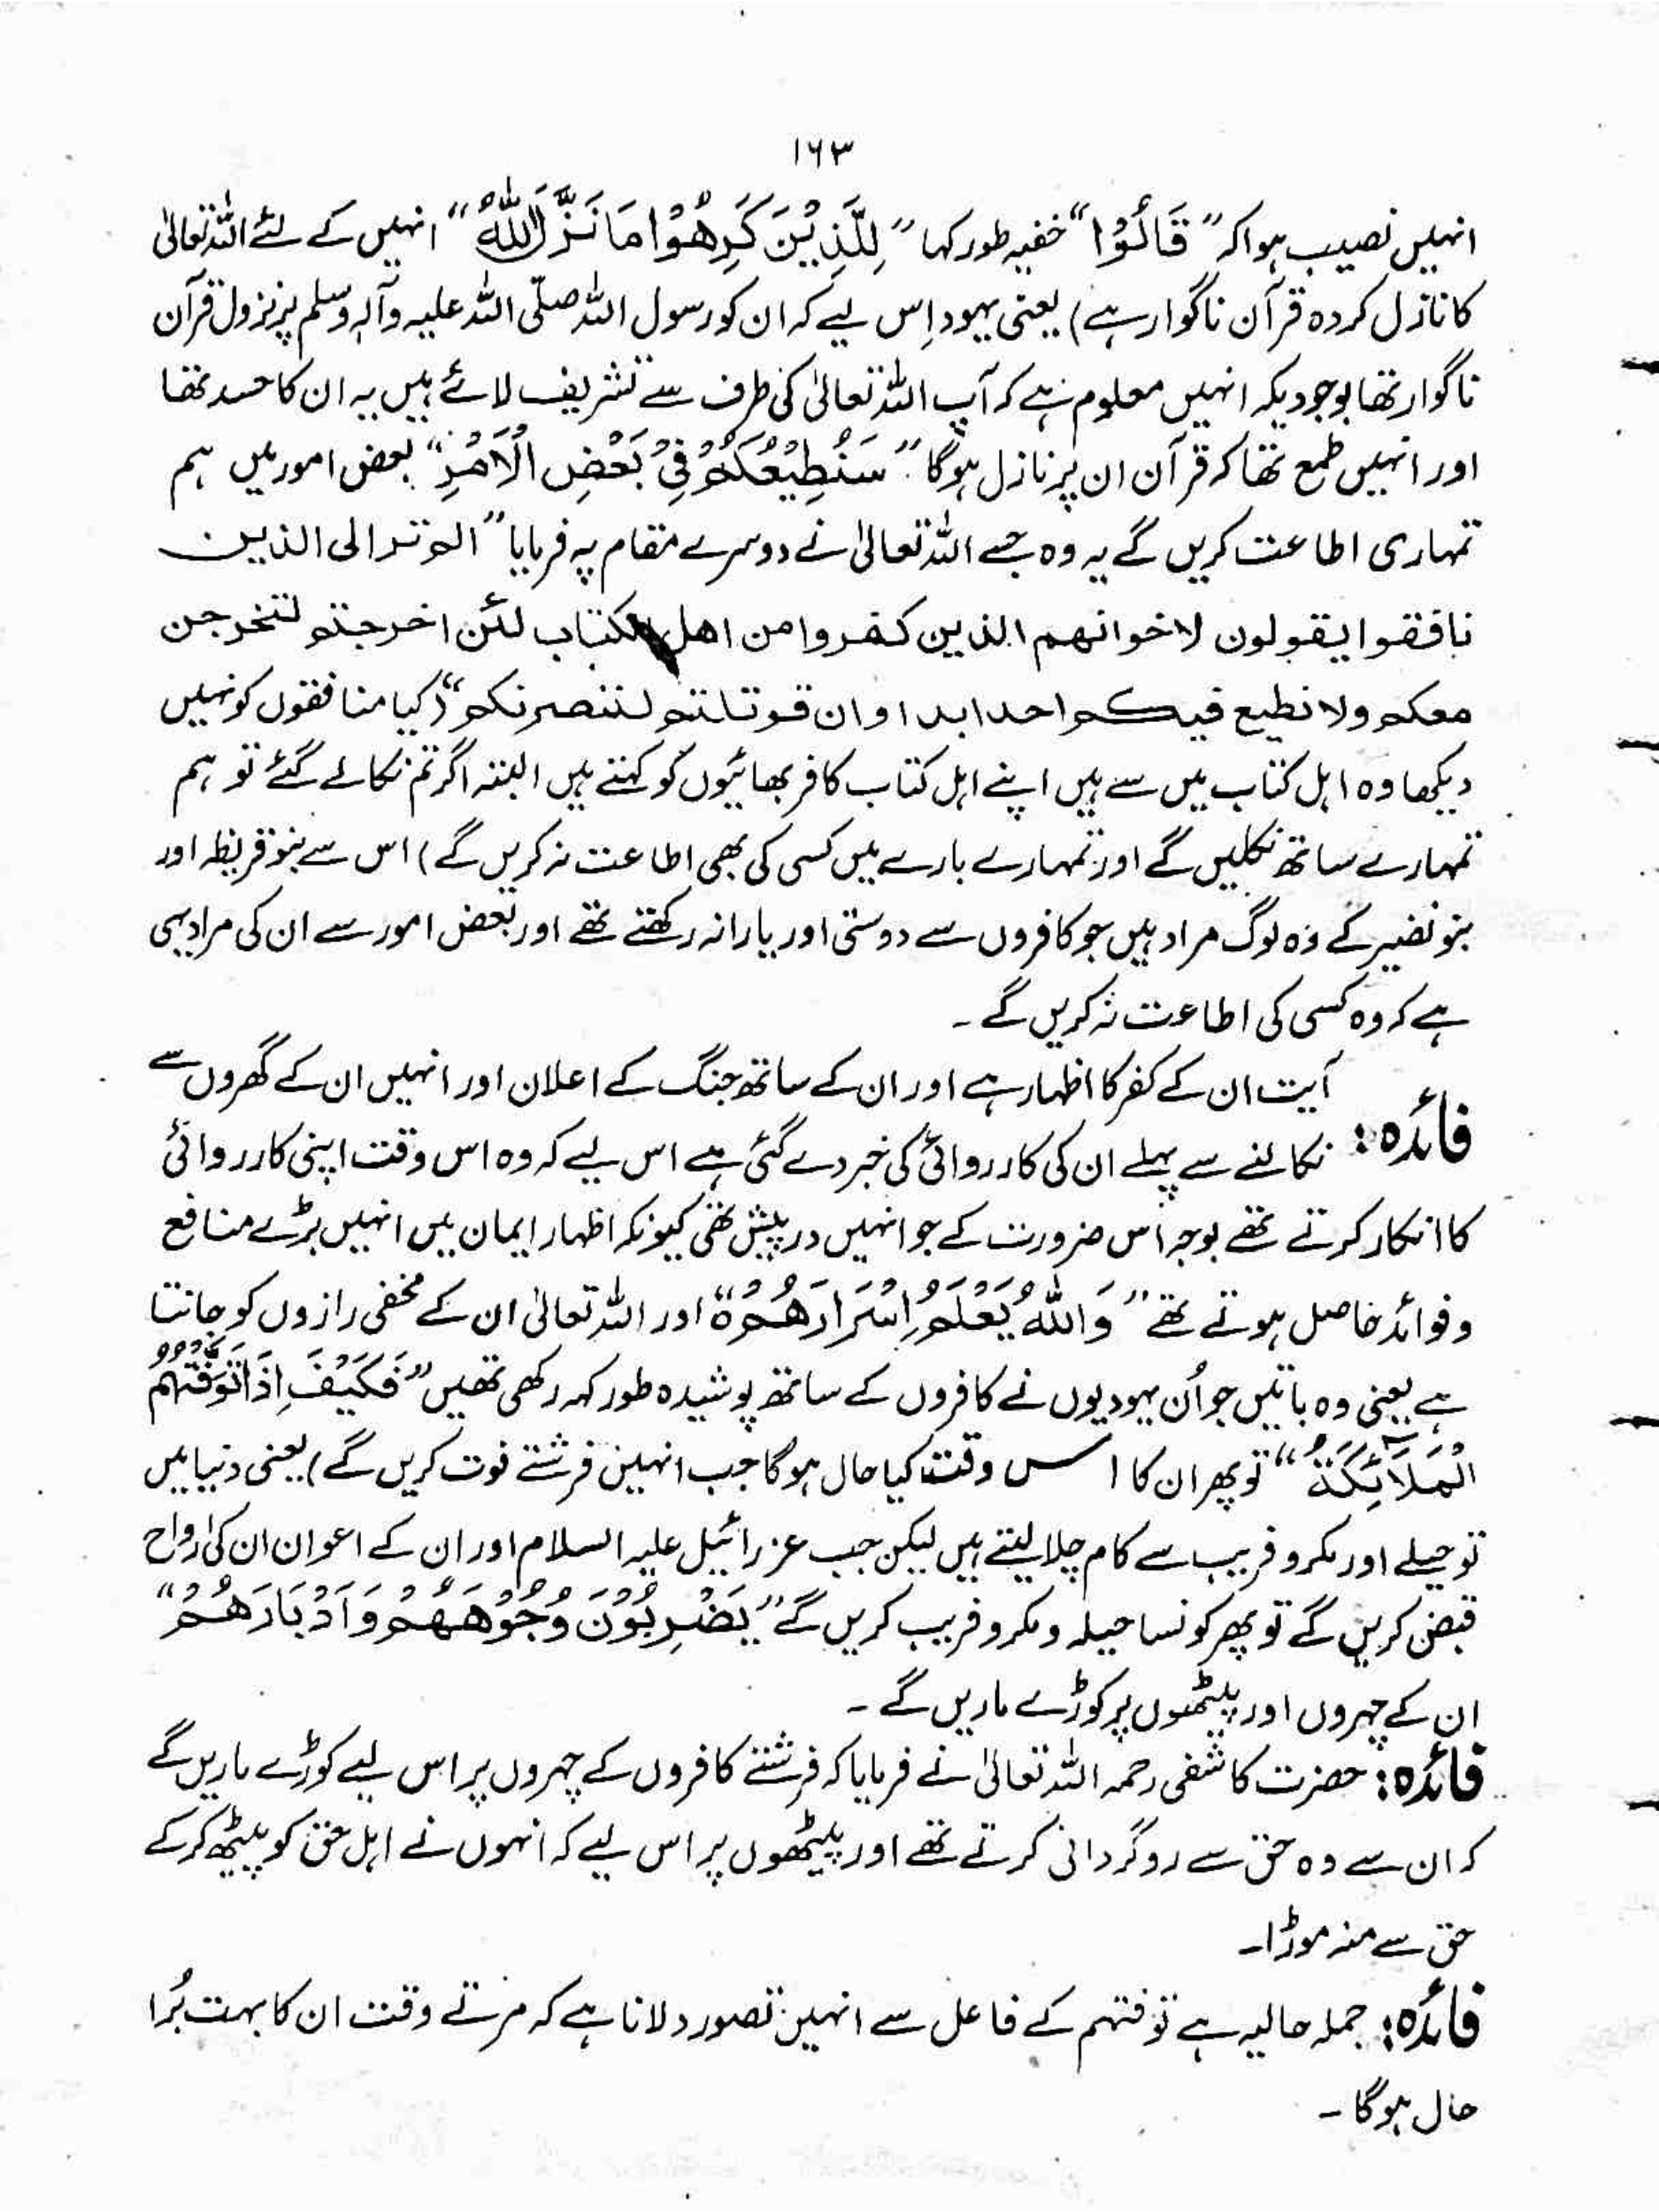 ۱۶۳
انہیں نصیب ہوا کہ " قَالُوْا " خفیہ طور کہا " لِلَّذِیْنَ کَرِھُوْا مَا نَزَّلَ اللّٰہُ " انہیں کے لئے اللہ تعالیٰ
کا نازل کردہ قرآن ناگوار ہے) یعنی یہود اِس لیے کہ ان کو رسول اللہ صلّی اللہ علیہ وآلہٖ وسلم پر نزول قرآن
ناگوار تھا بوجودیکہ انہیں معلوم ہے کہ آپ اللہ تعالیٰ کی طرف سے تشریف لائے ہیں یہ ان کا حسد تھا
اور انہیں طمع تھا کہ قرآن ان پر نازل ہوگا " سَنُطِیْعُکُمْ فِیْ بَعْضِ الْاَمْرِ " بعض امور میں ہم
تمہاری اطاعت کریں گے یہ وہ جسے اللہ تعالیٰ نے دوسرے مقام پہ فرمایا " الم تر الی الذین
نافقوا یقولون لاخوانہم الذین کفروا من اھل الکتاب لئن اخرجتم لنخرجن
معکم ولا نطیع فیکم احدا ابدا وان قوتلتم لننصرنکم " (کیا منافقوں کو نہیں
دیکھا وہ اہل کتاب میں سے ہیں اپنے اہل کتاب کافر بھائیوں کو کہتے ہیں البتہ اگر تم نکالے گئے تو ہم
تمہارے ساتھ نکلیں گے اور تمہارے بارے میں کسی کی بھی اطاعت نہ کریں گے) اس سے بنو قریظہ اور
بنو نضیر کے وہ لوگ مراد ہیں جو کافروں سے دوستی اور یارانہ رکھتے تھے اور بعض امور سے ان کی مراد یہی
ہے کہ وہ کسی کی اطاعت نہ کریں گے ۔
فائدہ : آیت ان کے کفر کا اظہار ہے اور ان کے ساتھ جنگ کے اعلان اور انہیں ان کے گھروں سے
نکالنے سے پہلے ان کی کارروائی کی خبر دے گئی ہے اس لیے کہ وہ اس وقت اپنی کارروائی
کا انکار کرتے تھے بوجہ اس ضرورت کے جو انہیں درپیش تھی کیونکہ اظہار ایمان میں انہیں بڑے منافع
و فوائد حاصل ہوتے تھے " وَاللّٰہُ یَعْلَمُ اِسْرَارَھُمْ " اور اللہ تعالیٰ ان کے مخفی رازوں کو جانتا
ہے یعنی وہ باتیں جو اُن یہودیوں نے کافروں کے ساتھ پوشیدہ طور کہہ رکھی تھیں " فَکَیْفَ اِذَا تَوَفَّتْہُمُ
الْمَلَآئِکَةُ " تو پھر ان کا اس وقت کیا حال ہوگا جب انہیں فرشتے فوت کریں گے) یعنی دنیا میں
تو حیلے اور مکر و فریب سے کام چلا لیتے ہیں لیکن جب عزرائیل علیہ السلام اور ان کے اعوان ان کی ارواح
قبض کریں گے تو پھر کونسا حیلہ و مکر و فریب کریں گے " یَضْرِبُوْنَ وُجُوْھَھُمْ وَاَدْبَارَھُمْ "
ان کے چہروں اور پیٹھوں پر کوڑے ماریں گے ۔
فائدہ : حضرت کاشفی رحمہ اللہ تعالیٰ نے فرمایا کہ فرشتے کافروں کے چہروں پر اس لیے کوڑے ماریں گے
کہ ان سے وہ حق سے روگردانی کرتے تھے اور پیٹھوں پر اس لیے کہ انہوں نے اہل حق کو پیٹھ کر کے
حق سے منہ موڑا۔
فائدہ : جملہ حالیہ ہے توفتہم کے فاعل سے انہیں تصور دلانا ہے کہ مرتے وقت ان کا بہت بُرا
حال ہوگا ۔